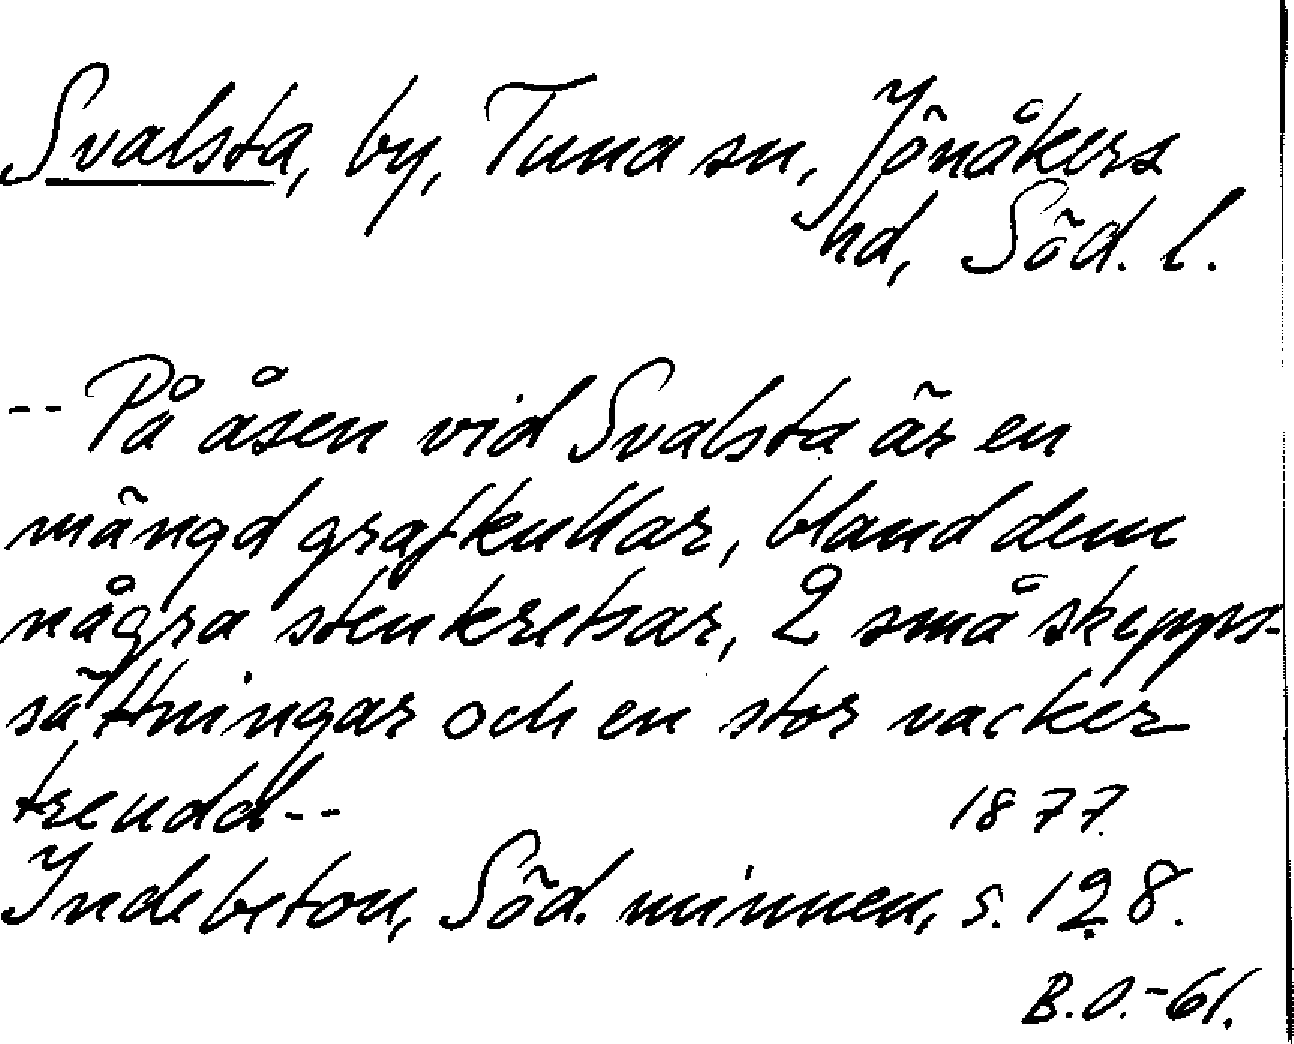 Svalsta, by, Tuna sn, Jönåkers
hd, Söd. l.
-- På åsen vid Svalsta är en
mängd grafkullar, bland dem
några stenkretsar, 2 små skepps-
sättningar och en stor vacker
treudd--
1877.
Indebetou, Söd. minnen, s. 128.
B.O.-61.